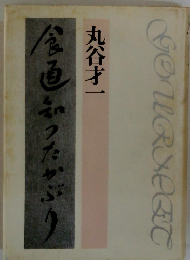 丸谷才一
食通知ったかぶり
GOURMET